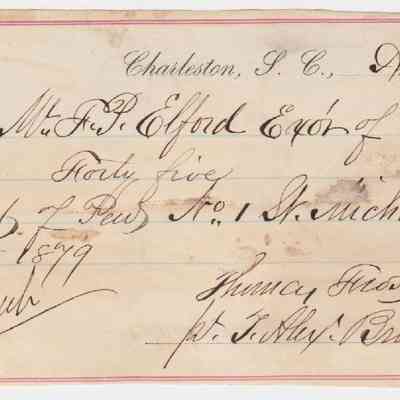 Charleston, S. C.,
Mr. F. P. Elford Exor of
Forty five
of Pew No. 1 St. Mich
1879
Thomas Frost
pr. T. Alexr. Br